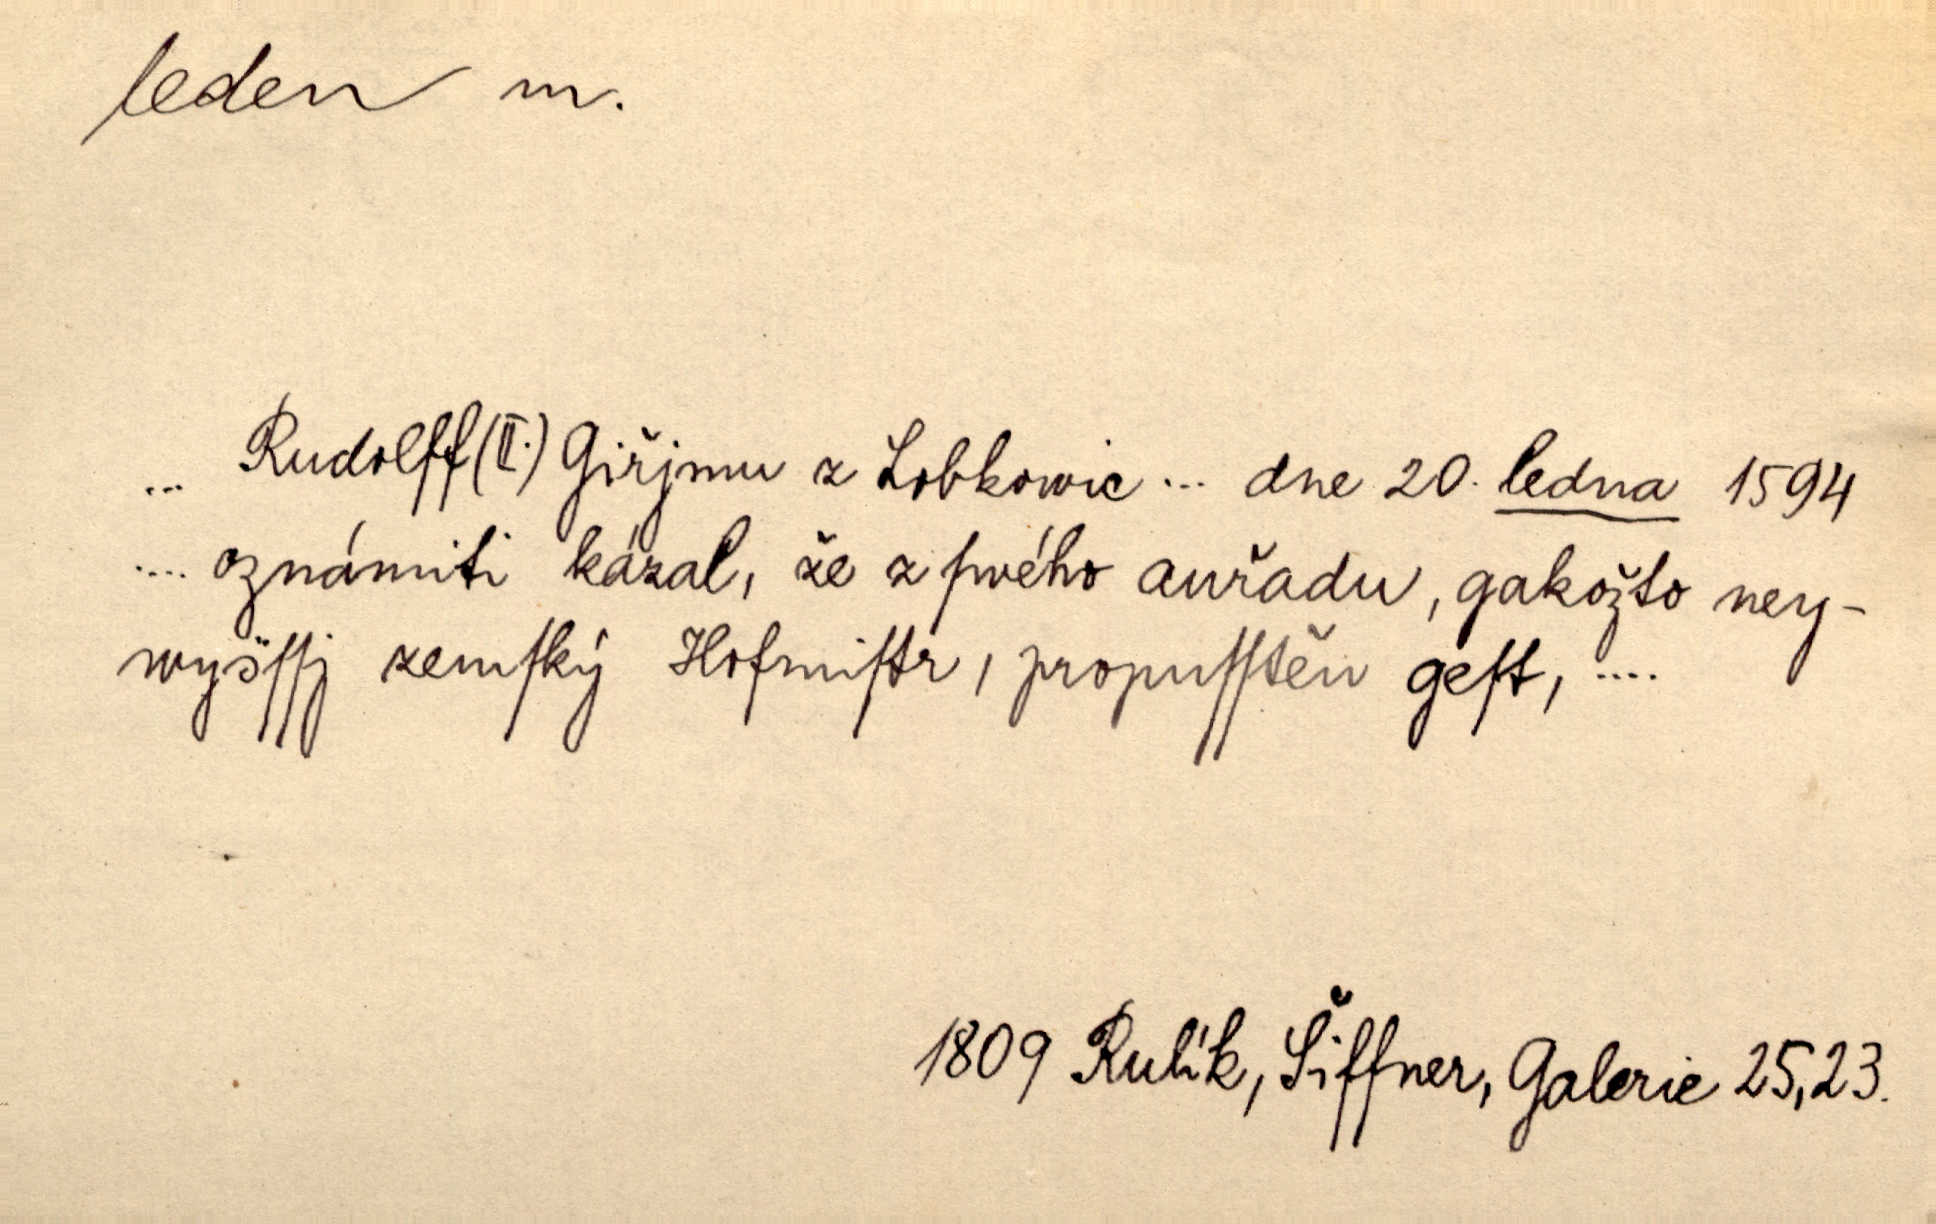 leden m.
... Rudolff (II.) Giřjmu z Lobkowic ... dne 20. ledna 1594
.... oznámiti kázal, že z ſwého auřadu, gakožto ney-
wyšſſj zemſký Hofmiſtr, propuſſtěn geſt, ....
1809 Rulík, Šiffner, Galerie 25,23.